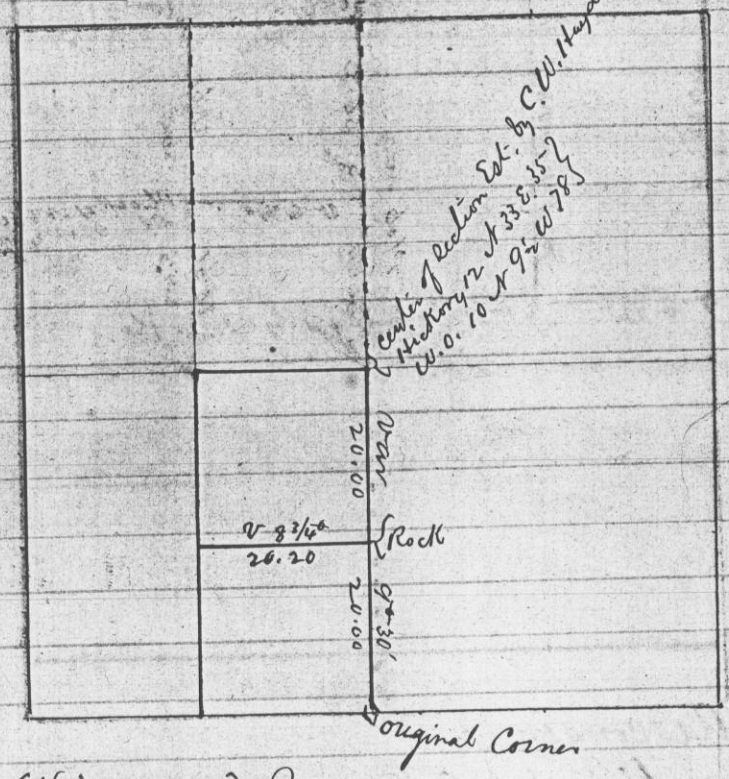 center of Section Est. by C. W.
Hickory 12 N 33 E. 35
W. O. 10 N 9½ W 78
Var
20.00
V 8 3/4°
20.20
Rock
9° 30'
20.00
original Corner